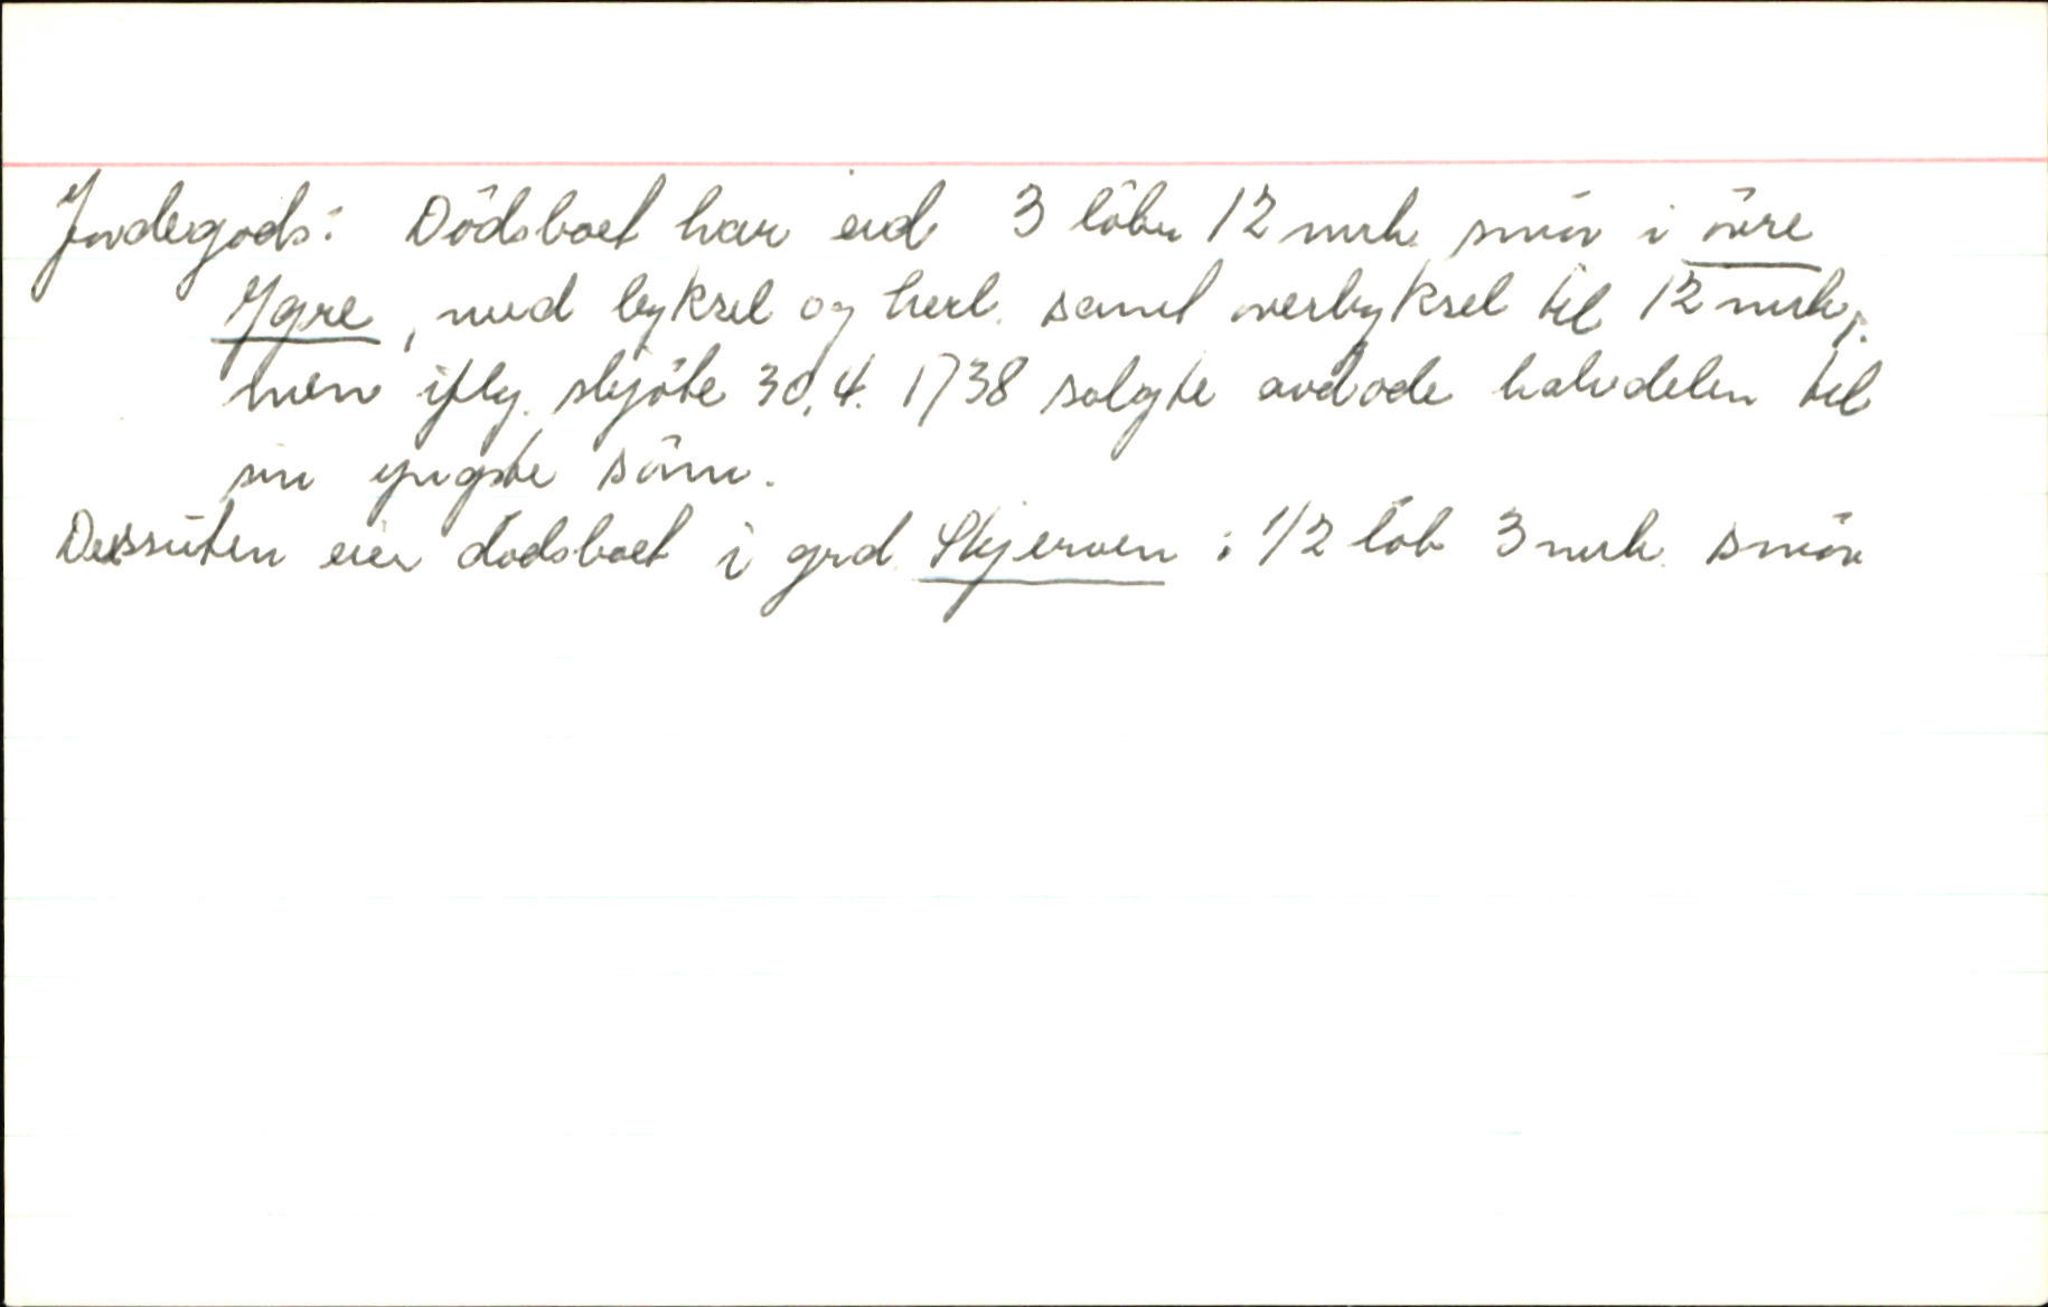 Jordegods: Dödsboet har eid 3 löber 12 mrk. smör i övre
Ygre, med byksel og herl. samt overbyksel til 12 mrk,
men iflg. skjöte 30.4. 1738 solgte avdöde halvdelen til
sin yngste sönn.
Dessuten eier dödsboet i grd. Skjerven: 1/2 löb 3 mrk. smör